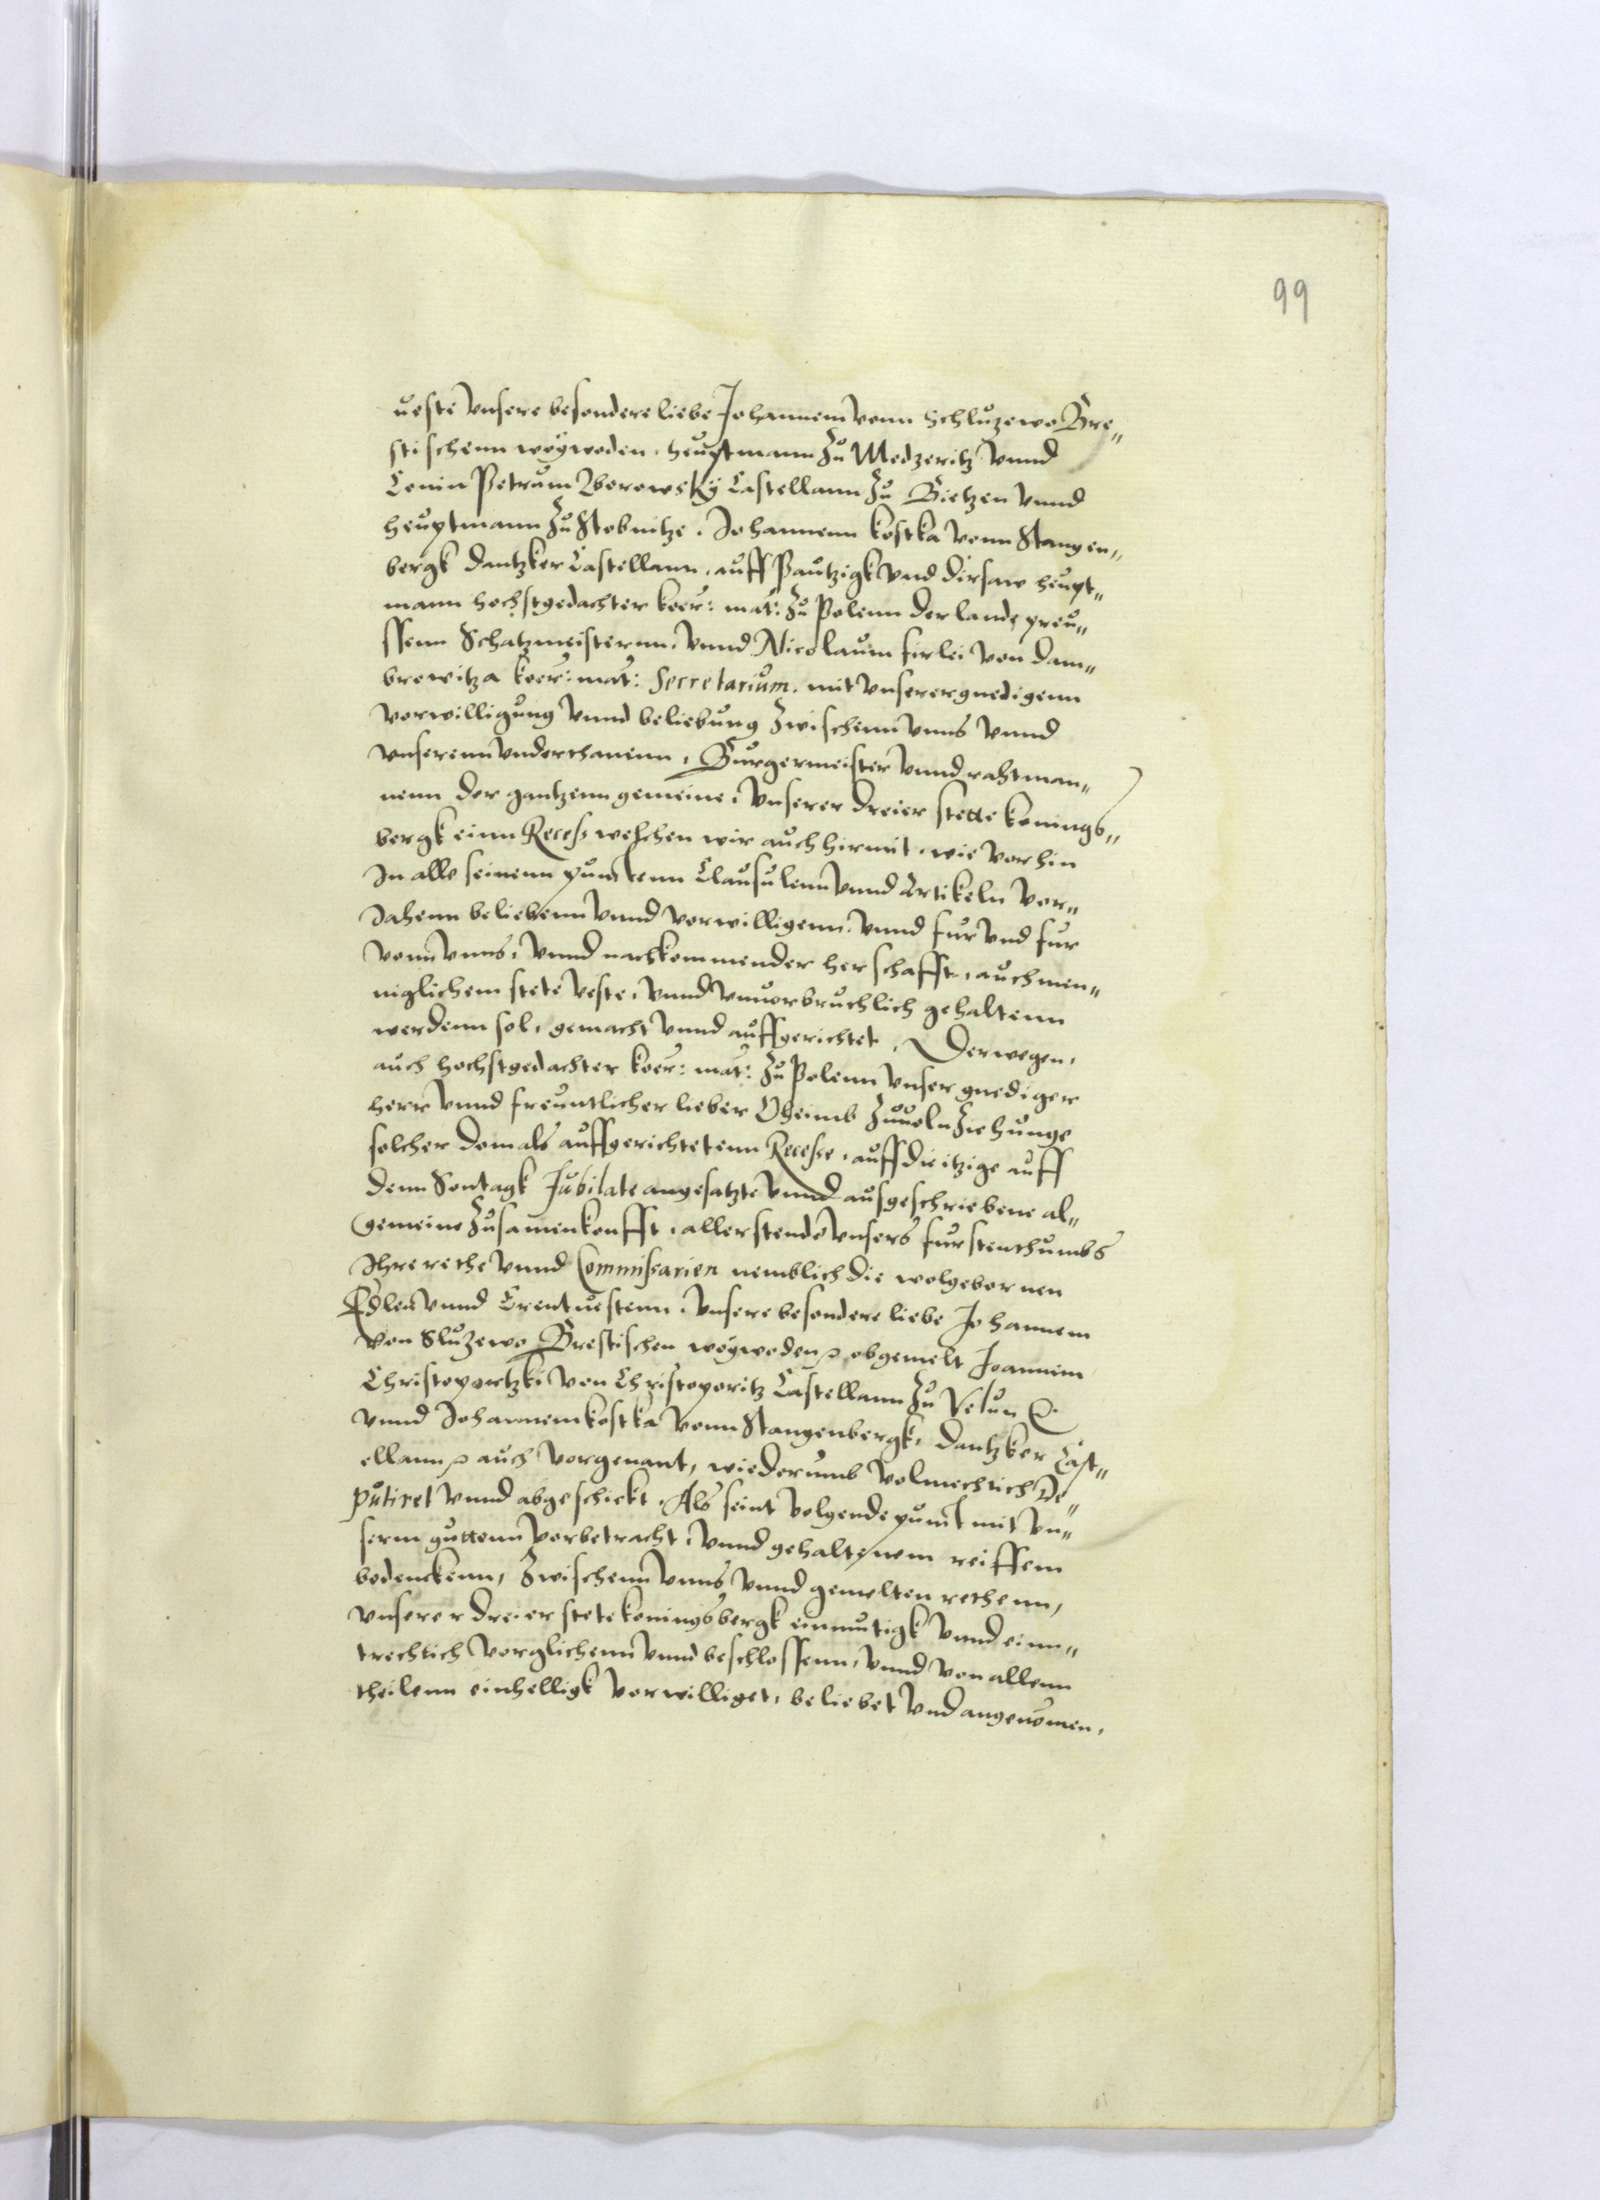 99
ueste vnsere besondere liebe Johannem vonn Schluzewo Bre„
stischenn weywoden, heuptmann zu Medzeritz vnnd
Conin Petrum Zborowsky Castellann zu Bietzen vnnd
heuptmann zu Stobnitze, Johannem kostka vonn Stangen„
bergk dantzker Castellann, auff Pautzigk vnd dirsaw heupt„
mann hochstgedachter koer: mat: zu Polenn der lande preu„
ssenn Schatzmeisternn, vnnd Nicolaum firlei von dam„
browitza koer: mat: Secretarium. mit vnserer gnedigenn
vorwilligung vnnd beliebung zwischenn vnns vnnd
vnserenn vnderthanenn, Burgermeister vnnd rahtman„
nenn der gantzenn gemeine, vnserer dreier stette konings„
bergk einn Recess welchen wir auch hirmit, wie vorhin
In alle seinenn puncktenn Clausulenn vnnd Artikeln vor„
Jahenn beliebenn vnnd vorwilligenn, vnnd fur vnd fur
vonn vnns, vnnd nachkommender herschafft, auch men„
niglichem stete veste, vnnd vnuorbruchlich gehaltenn
werdenn sol, gemacht vnnd auffgerichtet, Derwegen,
auch hochstgedachter koer: mat: zu Polenn vnser gnediger
herr vnnd freuntlicher lieber Oheimb zuuolnziehunge
solcher domals auffgerichtetenn Recesse, auff die itzige auff
denn Sontagk Jubilate angesatzte vnnd ausgeschriebene al„
gemeine zusamenkonfft, aller stende vnsers furstenthumbs
Ihre rethe vnnd Commissarien nemblich die wolgebornen
Edlen vnnd Erentuestenn, vnsere besondere liebe Johannem
von Sluzewo Brestischen weywoden obgemelt Joannem
Christoportzki von Christoporitz Castellann zu Velun
vnnd Johannem kostka vonn Stangenbergk, dantzker Cast„
ellann auch vorgenant, wiederumb volmechtich De„
putiret vnnd abgeschickt, Als seint volgende punct mit vn„
serm guttenn vorbetracht, vnnd gehaltenem reiffem
bedenckenn, zwischenn vnns vnnd gemelten rethenn,
vnserer dreier stete koningsbergk einmutigk vnnd einn„
trechtich vorglichenn vnnd beschlossenn, vnnd von allenn
theilenn einhelligk vorwilliget, beliebet vnd angenomen,